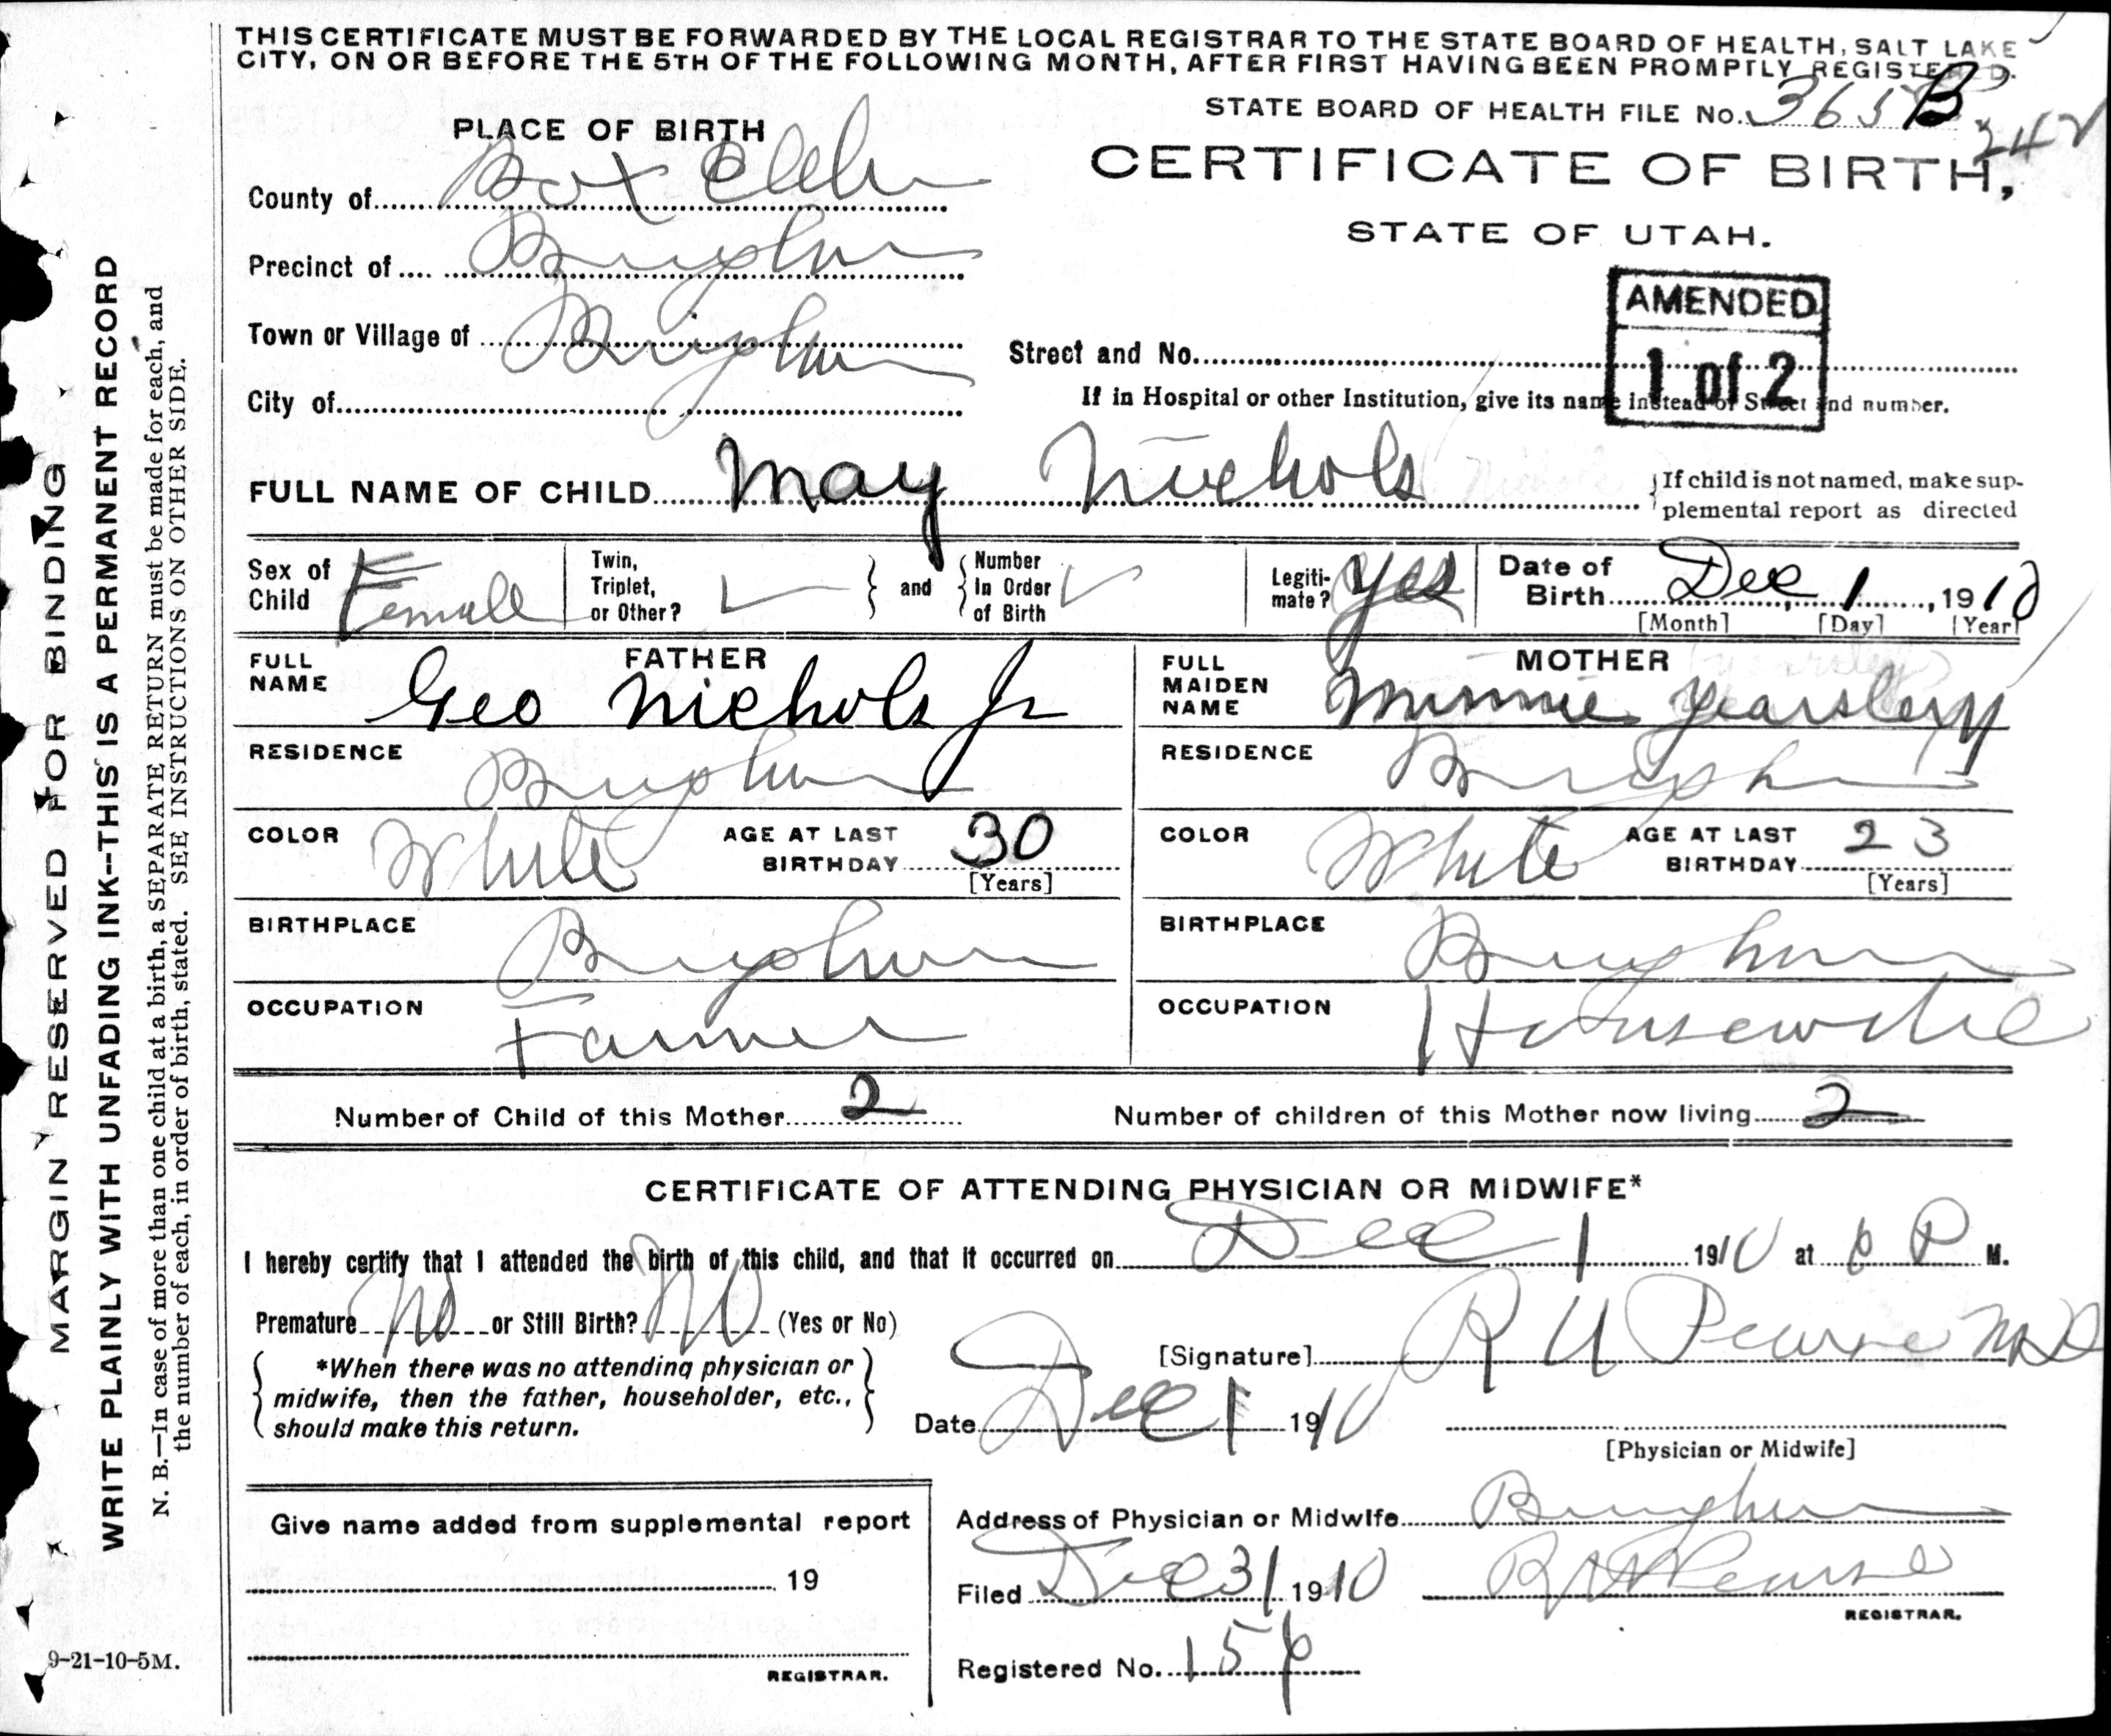 THIS CERTIFICATE MUST BE FORWARDED BY THE LOCAL REGISTRAR TO THE STATE BOARD OF HEALTH, SALT LAKE
CITY, ON OR BEFORE THE 5TH OF THE FOLLOWING MONTH, AFTER FIRST HAVING BEEN PROMPTLY REGISTERED.
STATE BOARD OF HEALTH FILE No. 365 B
242
PLACE OF BIRTH
CERTIFICATE OF BIRTH,
STATE OF UTAH.
County of Box Elder
Precinct of Brigham
Town or Village of Brigham
City of
AMENDED
1 of 2
Street and No.
If in Hospital or other Institution, give its name instead of Street and number.
FULL NAME OF CHILD May Nichols
If child is not named, make sup-
plemental report as directed
Sex of Child Female
Twin, Triplet, or Other? and Number In Order of Birth
Legiti-mate? Yes
Date of Birth Dec 1, 1910
[Month] [Day] [Year]
FATHER
FULL NAME Geo Nichols Jr
RESIDENCE Brigham
COLOR White AGE AT LAST BIRTHDAY 30
[Years]
BIRTHPLACE Brigham
OCCUPATION Farmer
MOTHER
FULL MAIDEN NAME Minnie Yearsley
RESIDENCE Brigham
COLOR White AGE AT LAST BIRTHDAY 23
[Years]
BIRTHPLACE Brigham
OCCUPATION Housewife
Number of Child of this Mother 2 Number of children of this Mother now living 2
CERTIFICATE OF ATTENDING PHYSICIAN OR MIDWIFE*
I hereby certify that I attended the birth of this child, and that it occurred on Dec 1 1910 at 6 P M.
Premature No or Still Birth? No (Yes or No)
*When there was no attending physician or
midwife, then the father, householder, etc.,
should make this return.
[Signature] R W Pearse MD
Date Dec 1 1910
[Physician or Midwife]
Give name added from supplemental report
19
REGISTRAR.
Address of Physician or Midwife Brigham
Filed Dec 31 1910 R W Pearse
REGISTRAR.
Registered No. 156
MARGIN RESERVED FOR BINDING
WRITE PLAINLY WITH UNFADING INK--THIS IS A PERMANENT RECORD
N. B.—In case of more than one child at a birth, a SEPARATE RETURN must be made for each, and
the number of each, in order of birth, stated. SEE INSTRUCTIONS ON OTHER SIDE.
9-21-10-5M.